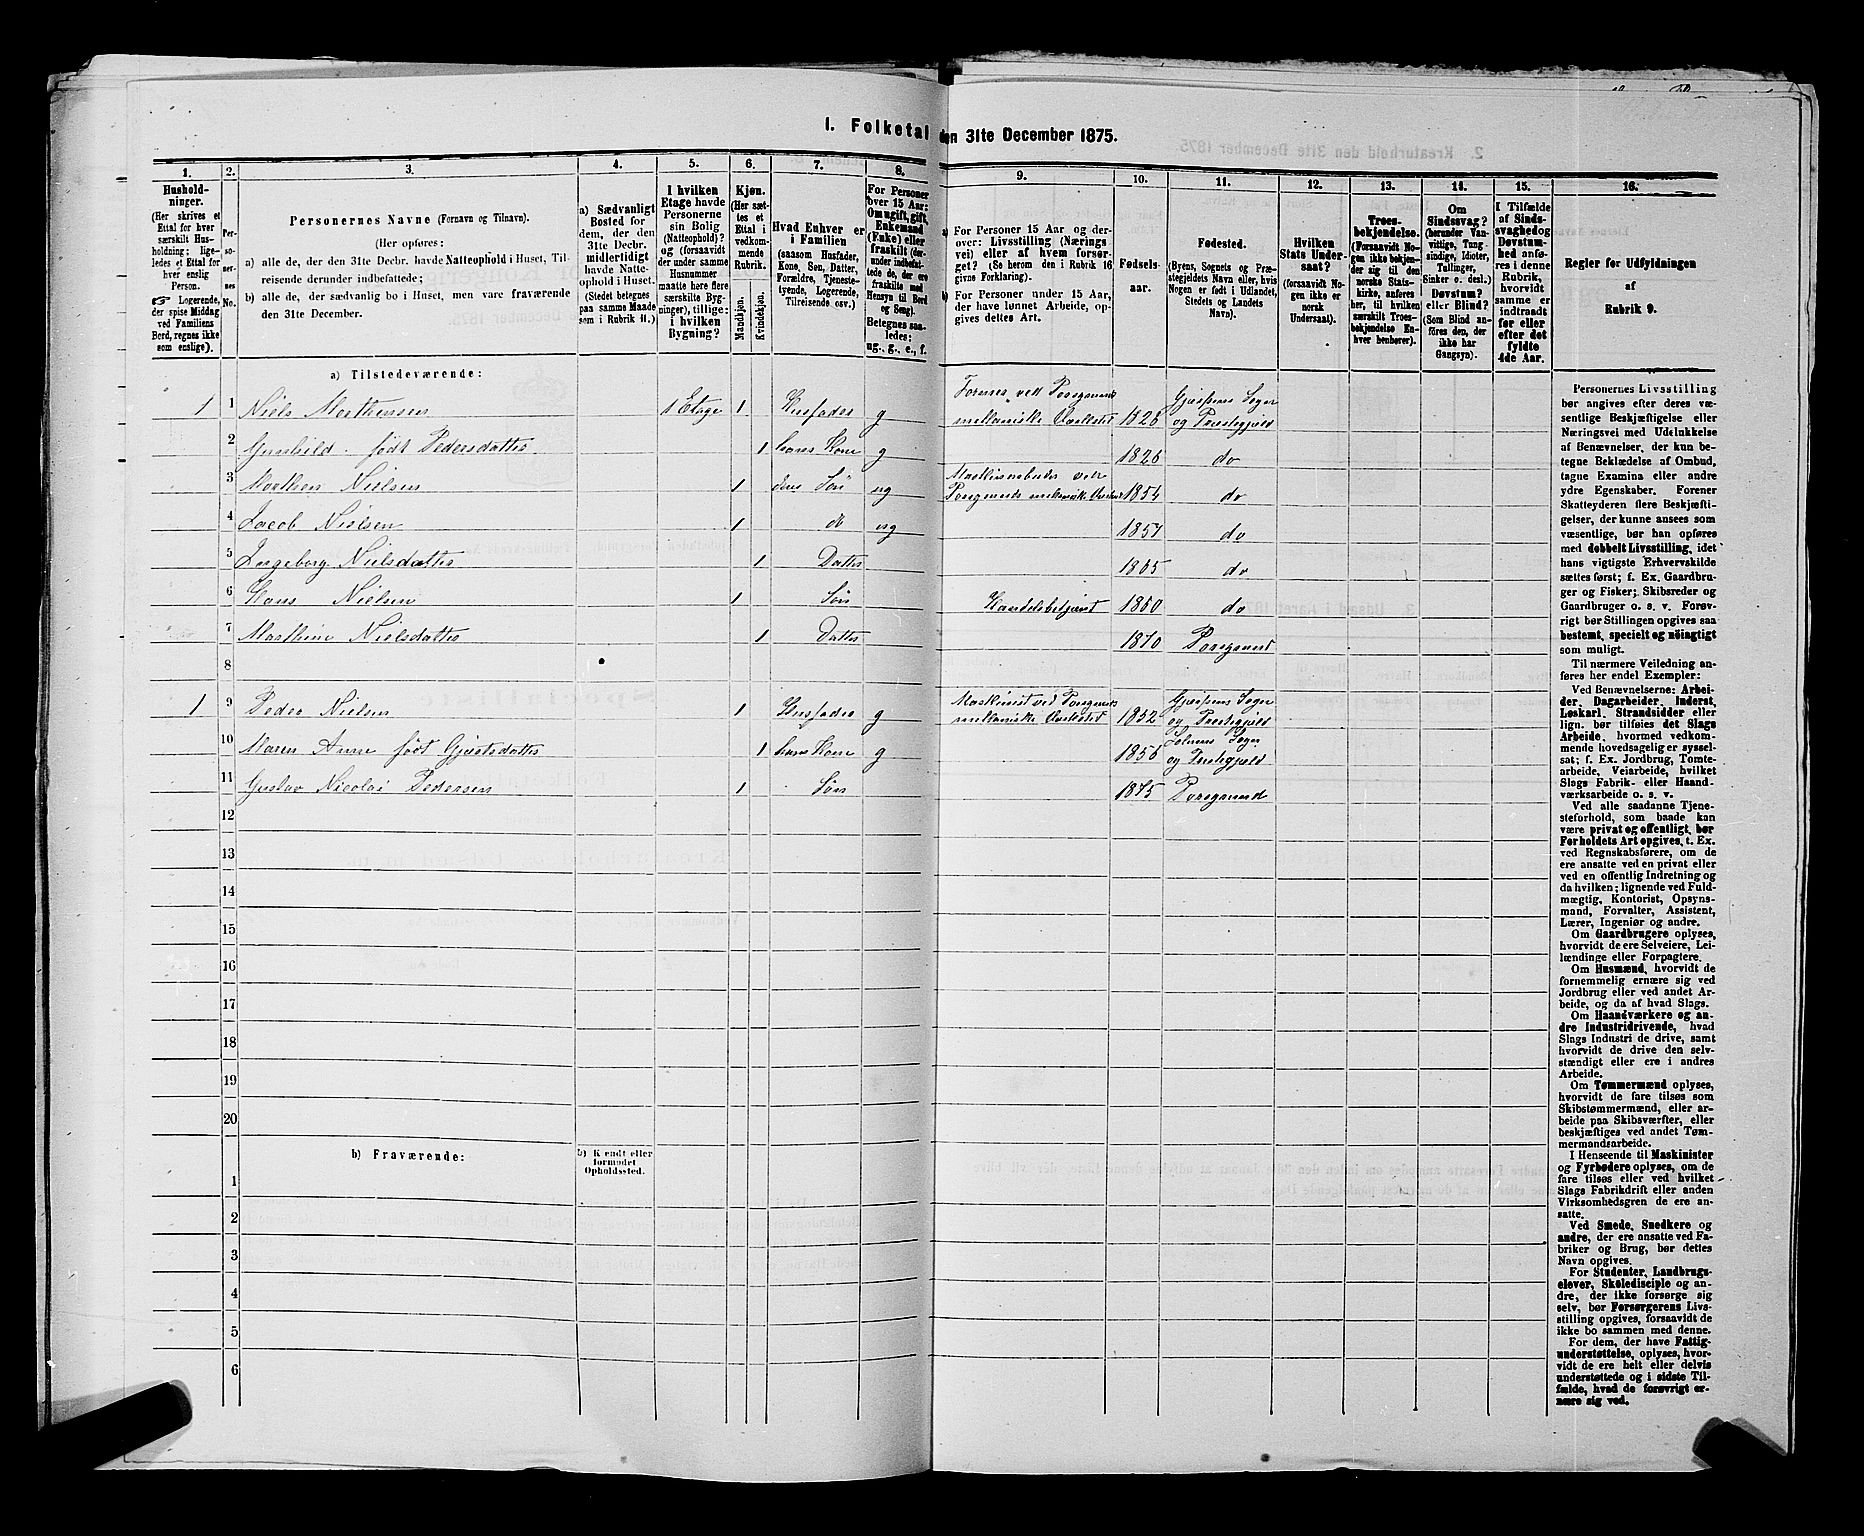 I. Folketal den 31te December 1875.
1.
Hushold-
ninger.
(Her skrives et
Ettal for hver
særskilt Hus-
holdning; lige-
ledes et Ettal for
hver enslig
Person.
☞ Logerende,
der spise Middag
ved Familiens
Bord, regnes ikke
som enslige).
2.
Per-
so-
ner-
nes
No.
3.
Personernes Navne (Fornavn og Tilnavn).
(Her opføres:
a) alle de, der den 31te Decbr. havde Natteophold i Huset, Til-
reisende derunder indbefattede;
b) alle de, der sædvanlig bo i Huset, men vare fraværende
den 31te December.
4.
a) Sædvanligt
Bosted for
dem, der den
31te Decbr.
midlertidigt
havde Natte-
ophold i Huset.
(Stedet betegnes
paa samme Maade
som i Rubrik 11.)
5.
I hvilken
Etage havde
Personerne
sin Bolig
(Natteophold)?
og (forsaavidt
der under samme
Husnummer
maatte høre flere
særskilte Byg-
ninger), tillige:
i hvilken
Bygning?
6.
Kjøn.
(Her sæt-
tes et
Ettal i
vedkom-
mende
Rubrik.
Mandkjøn.
Kvindekjøn.
7.
Hvad Enhver er
i Familien
(saasom Husfader,
Kone, Søn, Datter,
Forældre, Tjeneste-
tyende, Logerende,
Tilreisende osv.)
8.
For Personer
over 15 Aar:
Om ugift, gift,
Enkemand
(Enke) eller
fraskilt (der-
under indbefat-
tede de, der ere
fraskilte med
Hensyn til Bord
og Seng).
Betegnes saa-
ledes:
ug., g., e., f.
9.
a) For Personer 15 Aar og der-
over: Livsstilling (Nærings
vei) eller af hvem forsør-
get? (Se herom den i Rubrik 16
givne Forklaring).
b) For Personer under 15 Aar,
der have lønnet Arbeide, op-
gives dettes Art.
10.
Fødsels-
aar.
11.
Fødested.
(Byens, Sognets og Præ-
stegjeldets Navn eller, hvis
Nogen er født i Udlandet,
Stedets og Landets
Navn).
12.
Hvilken
Stats Under-
saat?
(forsaavidt No-
gen ikke er
norsk
Undersaat).
13.
Troes-
bekjendelse.
(Forsaavidt No-
gen ikke bekjen-
der sig til den
norske Stats-
kirke, anføres
her, til hvilken
særskilt Troes-
bekjendelse En-
hver henhører).
14.
Om
Sindssvag?
(herunder Van-
vittige, Tung-
sindige, Idioter,
Tullinger,
Sinker o. desl.)
Døvstum?
eller Blind?
(Som Blind an-
føres den, der
ikke har
Gangsyn).
15.
I Tilfælde
af Sinds-
svaghed og
Døvstum-
hed anfø-
res i denne
Rubrik,
hvorvidt
samme er
indtraadt
før eller
efter det
fyldte
4de Aar.
16.
Regler for Udfyldningen
af
Rubrik 9.
a) Tilstedeværende:
1 1 Niels Marthensen 1 Etage 1 Husfader g Former ved Porsgrunds mekaniske Værksted 1828 Gjerpens Sogn og Præstegjeld
2 Gunhild født Pedersdatter 1 hans Kone g 1826 do
3 Marthen Nielsen 1 Søn ug Porsgrunds mekanisk Værksted 1854 do
4 Jacob Nielsen 1 do ug 1857 do
5 Ingeborg Nielsdatter 1 Datter 1865 do
6 Hans Nielsen 1 Søn Handelsbetjent 1860 do
7 Marthine Nielsdatter 1 Datter 1870 Porsgrund
8
1 9 Peder Nielsen 1 Husfader g Maskinist ved Porsgrunds mekaniske Værksted 1852 Gjerpens Sogn og Præstegjeld
10 Maren Anne født Gjertsdatter 1 hans Kone g 1856 Solums Sogn og Præstegjeld
11 Gustav Nicolai Pedersen 1 Søn 1875 Porsgrund
12
13
14
15
16
17
18
19
20
b) Fraværende:
b) Kjendt eller
formodet
Opholdssted.
1
2
3
4
5
6
Personernes Livsstilling
bør angives efter deres væ-
sentlige Beskjæftigelse eller
Næringsvei med Udelukkelse
af Benævnelser, der kun be-
tegne Beklædelse af Ombud,
tagne Examina eller andre
ydre Egenskaber. Forener
Skatteyderen flere Beskjæfti-
gelser, der kunne ansees som
væsentlige, bør han opføres
med dobbelt Livsstilling, idet
hans vigtigste Erhvervskilde
sættes først; f. Ex. Gaardbru-
ger og Fisker; Skibsreder og
Gaardbruger o. s. v. Forøv-
rigt bør Stillingen opgives saa
bestemt, specielt og nöiagtigt
som muligt.
Til nærmere Veiledning an-
føres her endel Exempler:
Ved Benævnelserne: Arbei-
der, Dagarbeider, Inderst,
Løskarl, Strandsidder eller
lign. bør tilføies det Slags
Arbeide, hvormed vedkom-
mende hovedsagelig er syssel-
sat; f. Ex. Jordbrug, Tomte-
arbeide, Veiarbeide, hvilket
Slags Fabrik- eller Haand-
værksarbeide o. s. v.
Ved alle saadanne Tjene-
steforhold, som baade kan
være privat og offentligt, bør
Forholdets Art opgives, t. Ex.
ved Regnskabsførere, om de
ere ansatte ved en privat eller
ved en offentlig Indretning og
da hvilken; lignende ved Fuld-
mægtig, Kontorist, Opsyns-
mand, Forvalter, Assistent,
Lærer, Ingeniør og andre.
Om Gaardbrugere oplyses,
hvorvidt de ere Selveiere, Lei-
lændinge eller Forpagtere.
Om Husmænd, hvorvidt de
fornemmelig ernære sig ved
Jordbrug eller ved andet Ar-
beide, og da af hvad Slags.
Om Haandværkere og an-
dre Industridrivende, hvad
Slags Industri de drive, samt
hvorvidt de drive den selv-
stændigt eller ere i andres
Arbeide.
Om Tømmermænd oplyses,
hvorvidt de fare tilsøs som
Skibstømmermænd, eller ar-
beide paa Skibsværfter, eller
beskjæftiges ved andet Tøm-
mermandsarbeide.
I Henseende til Maskinister
og Fyrbødere oplyses, om de
fare tilsøs eller ved hvilket
Slags Fabrikdrift eller anden
Virksomhedsgren de ere an-
satte.
Ved Smede, Snedkere og
andre, der ere ansatte ved Fa-
briker og Brug, bør dettes
Navn opgives.
For Studenter, Landbrugs-
elever, Skoledisciple og an-
dre, der ikke forsørge sig
selv, bør Forsørgerens Livs-
stilling opgives, forsaavidt de
ikke bo sammen med denne.
For dem, der have Fattig-
understøttelse, oplyses, hvor-
vidt de ere helt eller delvis
understøttede og i sidste Til-
fælde, hvad de forøvrigt er-
nære sig ved.